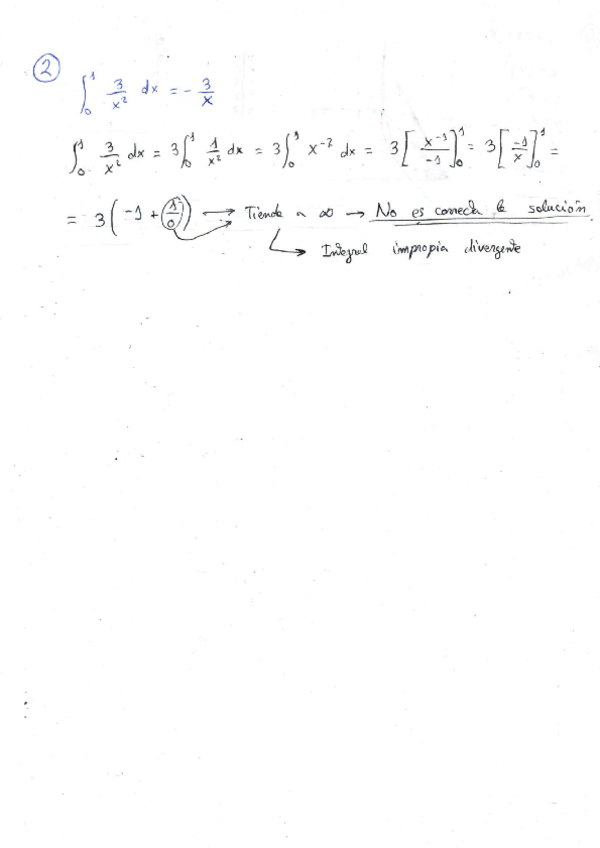 2
∫₀¹ 3/x² dx = - 3/x
∫₀¹ 3/x² dx = 3∫₀¹ 1/x² dx = 3∫₀¹ x⁻² dx = 3[x⁻¹/-1]₀¹ = 3[-1/x]₀¹ =
= 3(-1 + 1/0) → Tiende a ∞ → No es correcta la solución.
↳ Integral impropia divergente